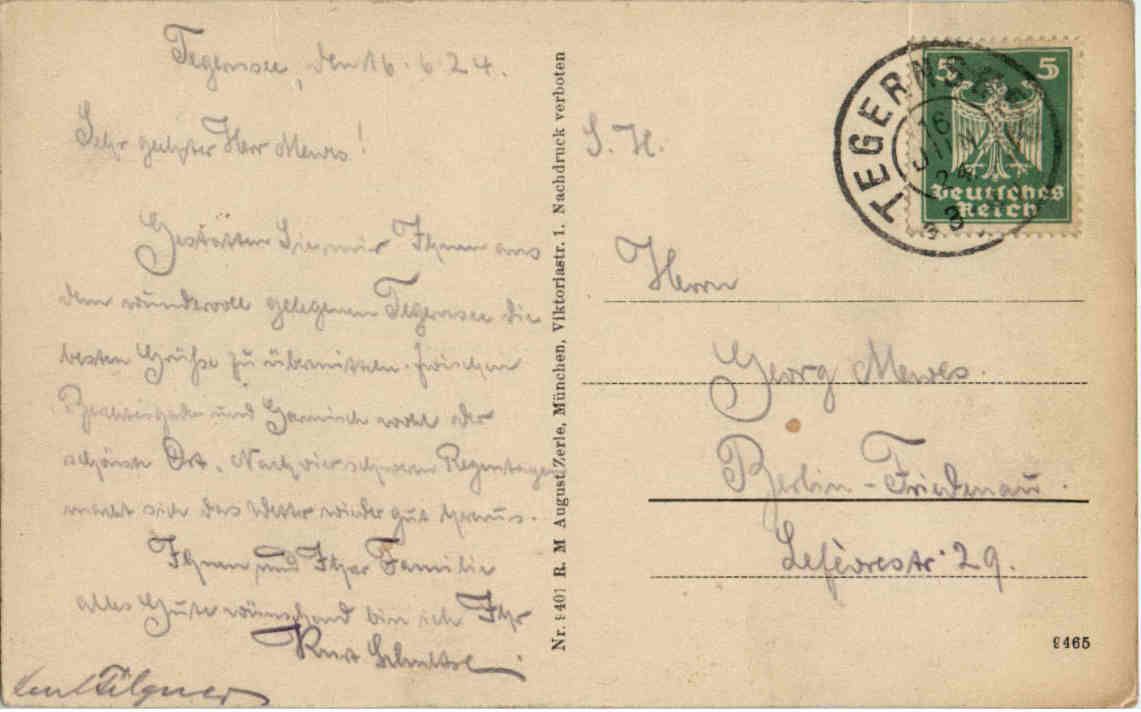 Tegernsee, den 16.6.24.
Sehr geehrter Herr Mewes!
Gestatten Sie mir Ihnen aus
dem wundervoll gelegenen Tegernsee die
besten Grüße zu übermitteln. Zwischen
und Garmisch wohl der
schönste Ort. Nach vier schweren Regentagen
macht sich das Wetter wieder gut heraus.
Ihnen und Ihrer Familie
alles Gute wünschend bin ich Ihr
Kurt
Nr. 9401 R. M August Zerle, München, Viktoriastr. 1. Nachdruck verboten
S. H.
5 5
Deutsches
Reich
TEGERNS
16
JUN
24
3
Herrn
Georg Mewes.
Berlin-Friedenau.
Lefèvrestr. 29.
9465